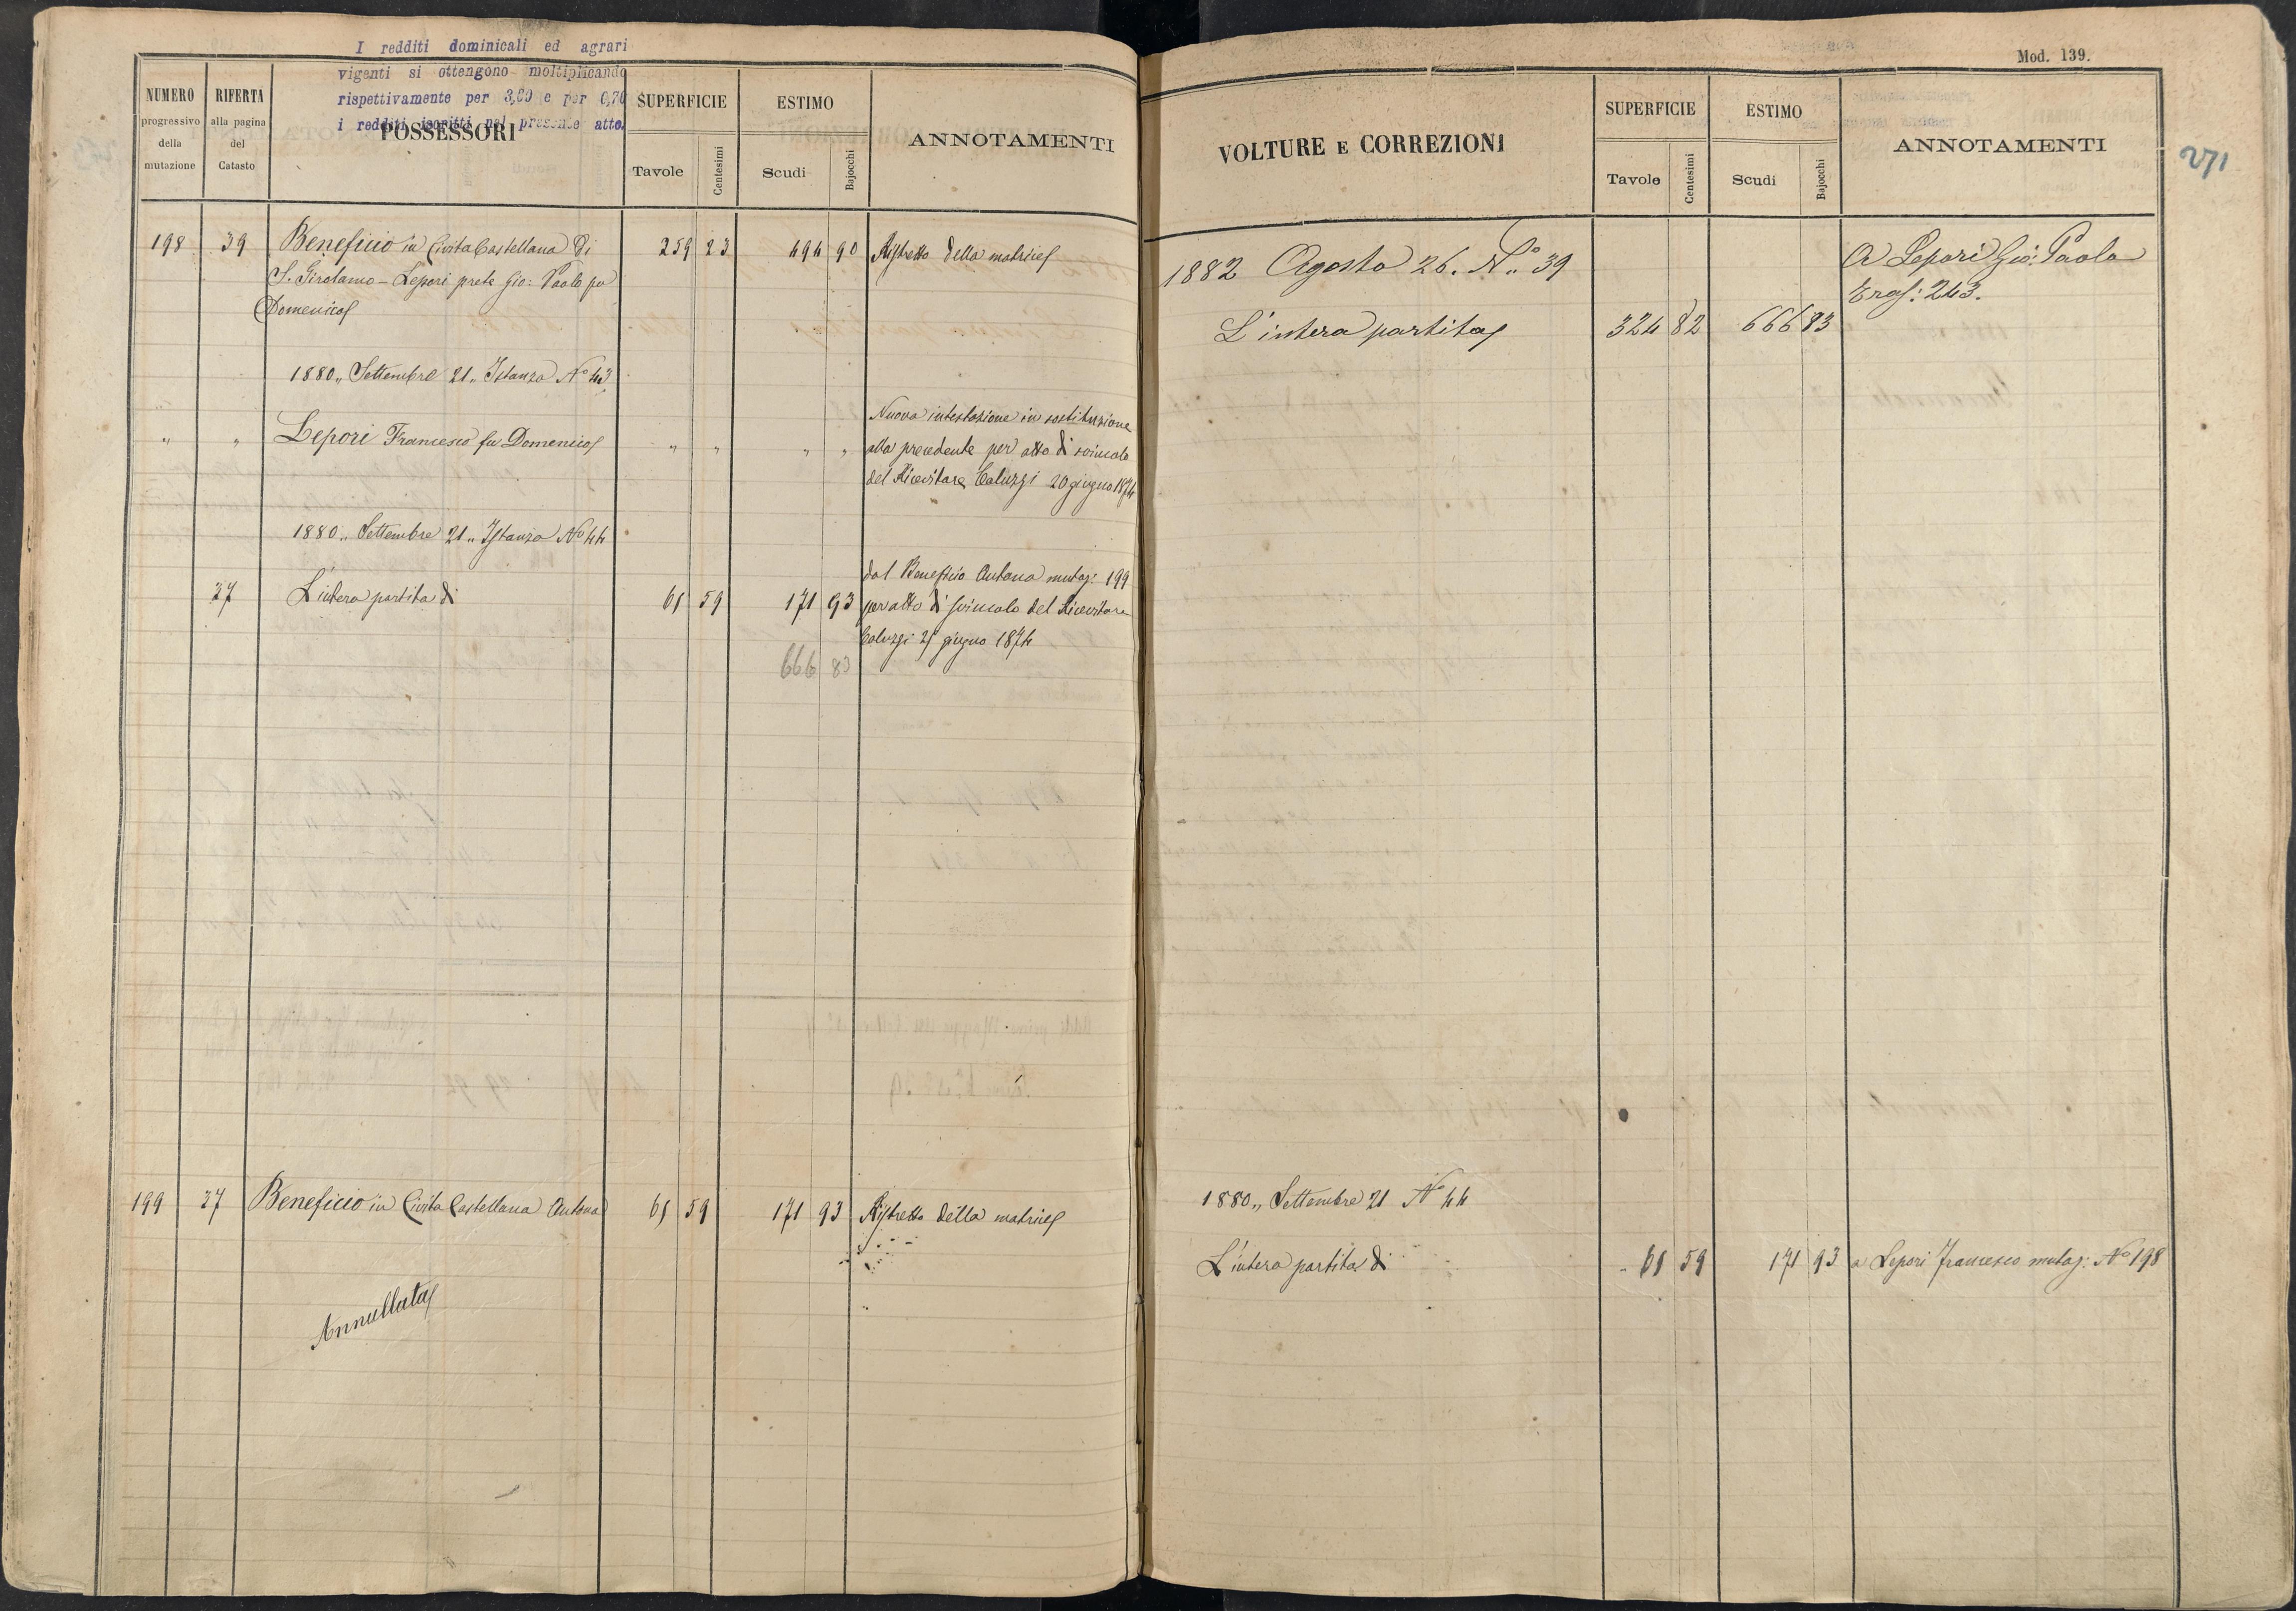 I redditi dominicali ed agrari
vigenti si ottengono moltiplicando
rispettivamente per 3,60 e per 0,70
i redditi iscritti nel presente atto.
NUMERO progressivo della mutazione
RIFERTA alla pagina del Catasto
POSSESSORI
SUPERFICIE
Tavole Centesimi
ESTIMO
Scudi Bajocchi
ANNOTAMENTI
198 39 Beneficio in Civita Castellana di 259 23 494 90 Ristretto della matrice
S. Girolamo - Lepori prete Gio: Paolo fu
Domenico
1880 „ Settembre 21 „ Istanza N° 43
Nuova intestazione in sostituzione
„ „ Lepori Francesco fu Domenico „ „ „ „ alla precedente per atto di svincolo
del Ricevitore Caluzzi 20 giugno 1874
1880 „ Settembre 21 „ Istanza N° 44
dal Beneficio Autona mutaz: 199
37 L'intera partita di 65 59 171 93 per atto di svincolo del Ricevitore
Caluzzi 25 giugno 1874
666 83
199 37 Beneficio in Civita Castellana Autona 65 59 171 93 Ristretto della matrice
Annullata
Mod. 139.
271
VOLTURE E CORREZIONI
SUPERFICIE
Tavole Centesimi
ESTIMO
Scudi Bajocchi
ANNOTAMENTI
1882 Agosto 26. N.° 39 A Lepori Gio: Paolo
243.
L'intera partita 324 82 666 83
1880 „ Settembre 21 N° 44
L'intera partita di 65 59 171 93 a Lepori Francesco mutaz: N° 198